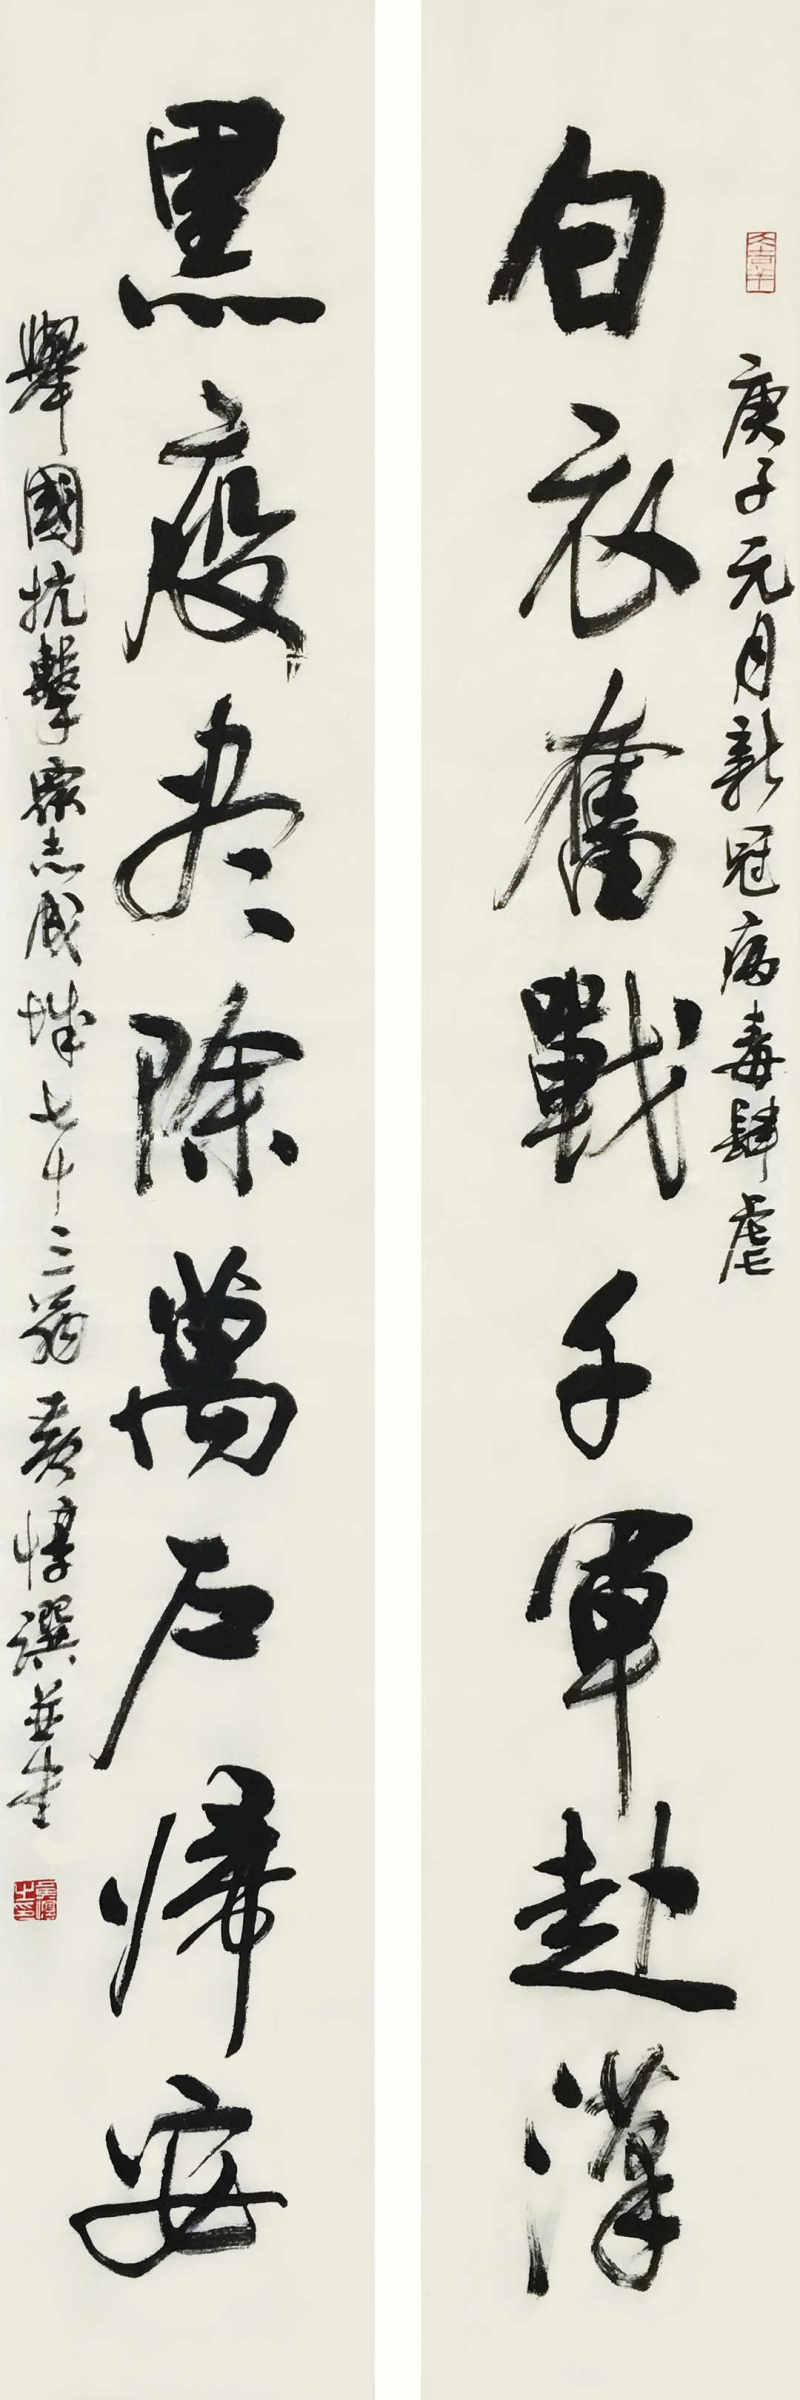 庚子元月新冠病毒肆虐
白衣奮戰千軍赴漢
黑疫尽除萬户歸安
舉國抗擊衆志成城七十三翁黄惇撰並書